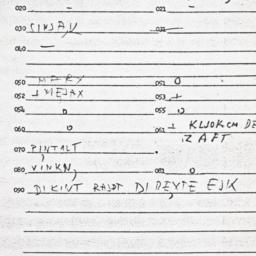 020 — 021 —
030 SINJAV 032 —
040 —
050 MARY 051 0
052 1 MEJAX 053 1
054 0 055 0
060 0 061 1 KLJOKCM DE
ZAFT
070 PINTALT
080 VINKN, 081 0
090 DI KINT RAJDT DI REXTE EJK